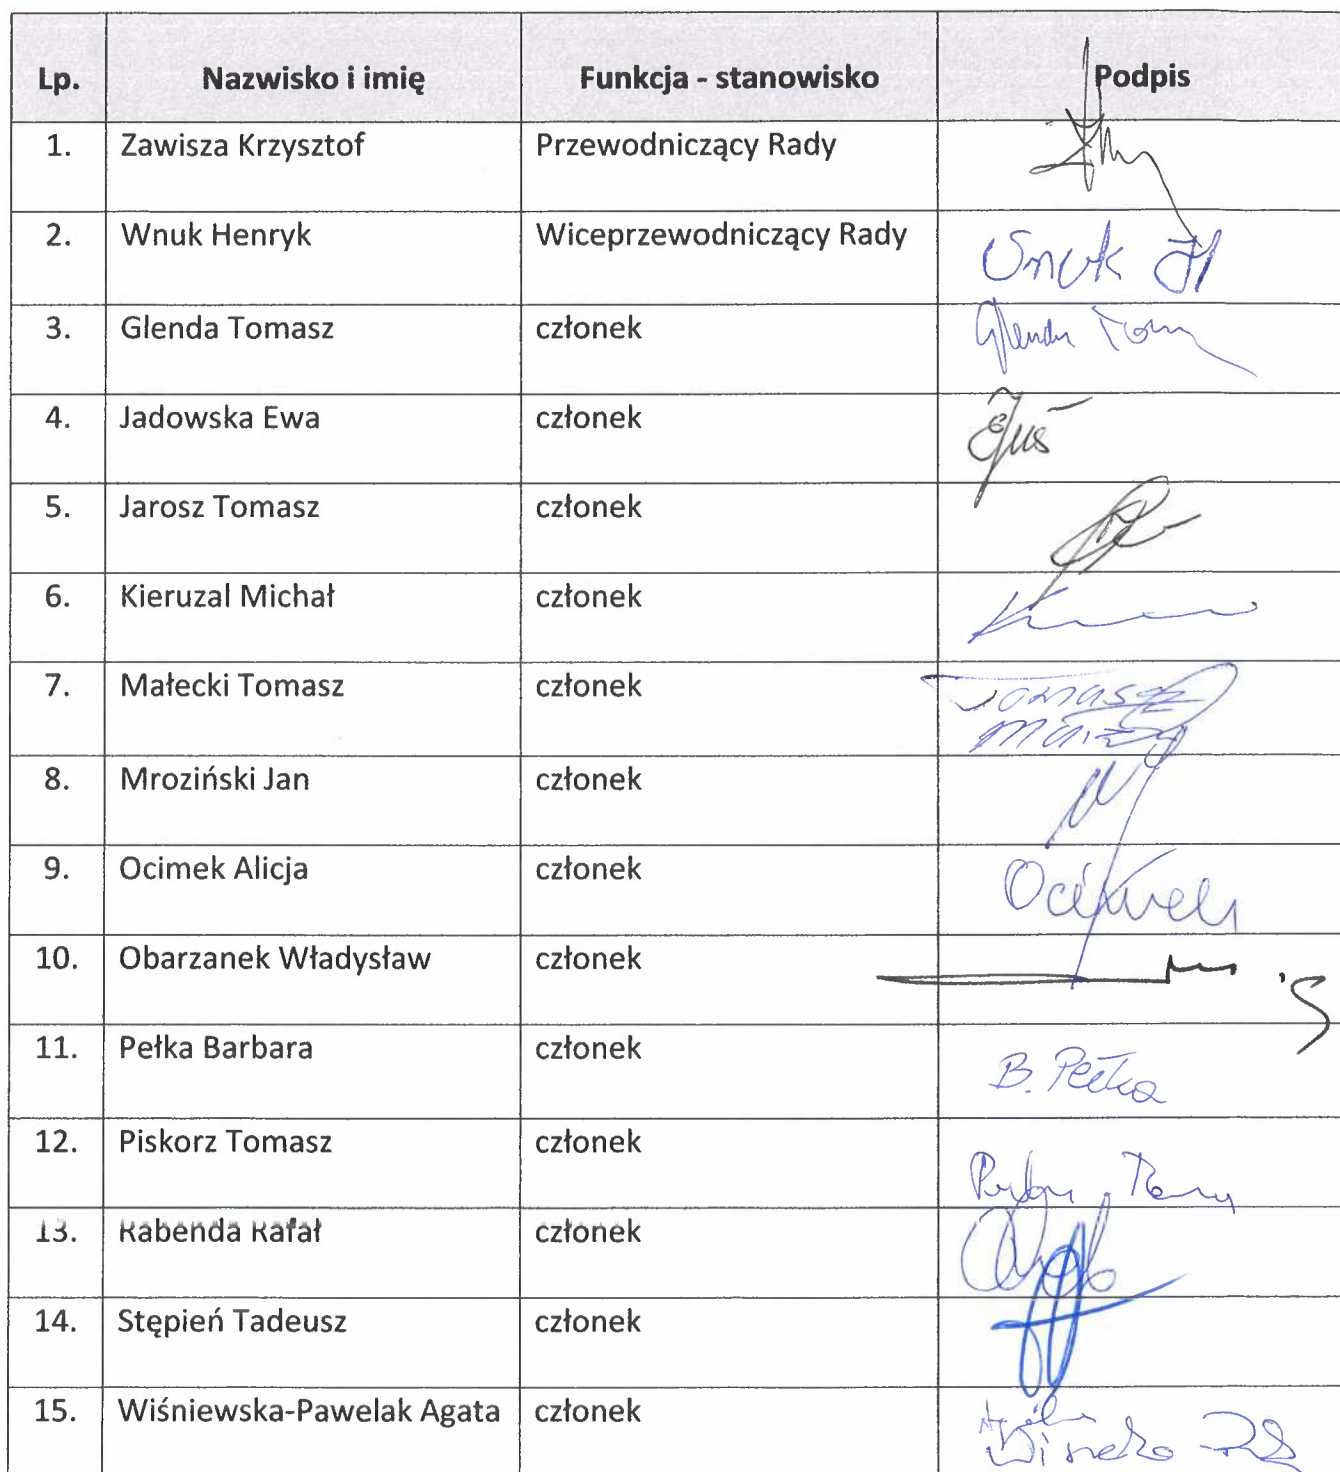 Lp. Nazwisko i imię Funkcja - stanowisko Podpis
1. Zawisza Krzysztof Przewodniczący Rady
2. Wnuk Henryk Wiceprzewodniczący Rady Wnuk H
3. Glenda Tomasz członek Glenda Tom
4. Jadowska Ewa członek
5. Jarosz Tomasz członek
6. Kieruzal Michał członek
7. Małecki Tomasz członek Tomasz
8. Mroziński Jan członek
9. Ocimek Alicja członek Ocimek
10. Obarzanek Władysław członek
11. Pełka Barbara członek B. Pełka
12. Piskorz Tomasz członek
13. Rabenda Rafał członek
14. Stępień Tadeusz członek
15. Wiśniewska-Pawelak Agata członek